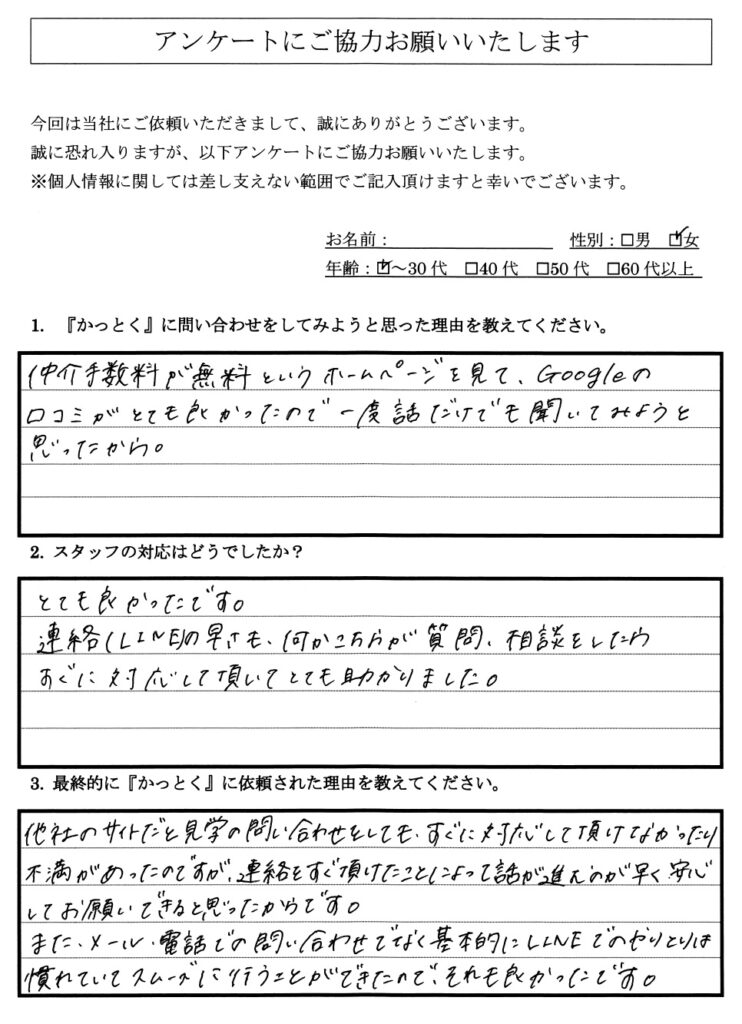 アンケートにご協力お願いいたします
今回は当社にご依頼いただきまして、誠にありがとうございます。
誠に恐れ入りますが、以下アンケートにご協力お願いいたします。
※個人情報に関しては差し支えない範囲でご記入頂けますと幸いでございます。
お名前： 性別：□男 ☑女
年齢：☑～30代 □40代 □50代 □60代以上
1. 『かっとく』に問い合わせをしてみようと思った理由を教えてください。
仲介手数料が無料というホームページを見て、Googleの
口コミがとても良かったので一度話だけでも聞いてみようと
思ったから。
2. スタッフの対応はどうでしたか？
とても良かったです。
連絡(LINE)の早さも、何かこちらが質問、相談をしたら
すぐに対応して頂いてとても助かりました。
3. 最終的に『かっとく』に依頼された理由を教えてください。
他社のサイトだと見学の問い合わせをしても、すぐに対応して頂けなかったり
不満があったのですが、連絡をすぐ頂けたことによって話が進むのが早く安心
してお願いできると思ったからです。
また、メール・電話での問い合わせでなく基本的にLINEでのやりとりは
慣れていてスムーズに行うことができたので、それも良かったです。